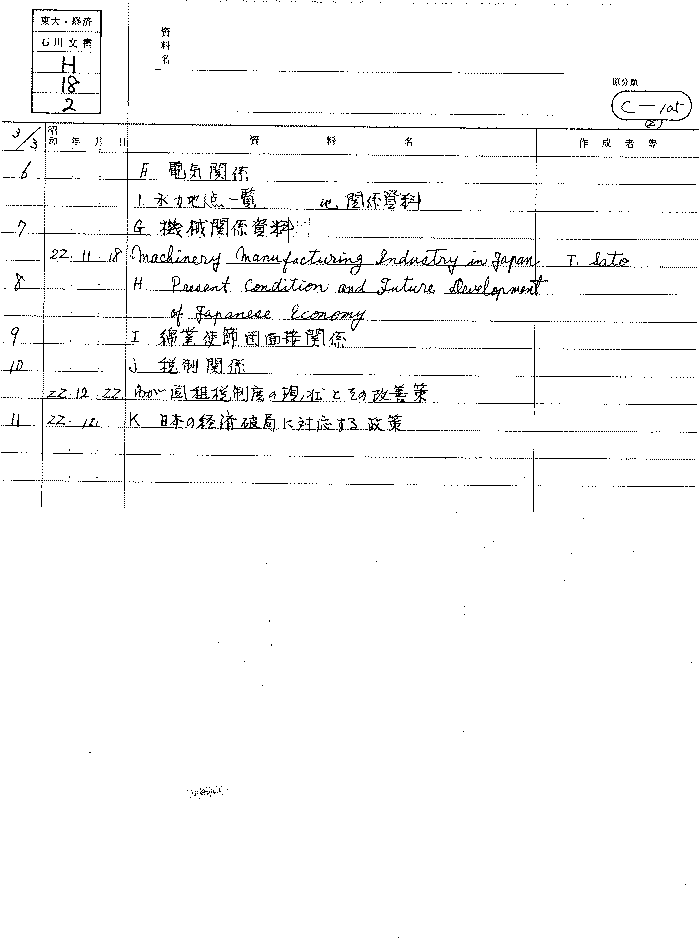 東大・経済
石川文書
H
18
2
資料名
原分類
C-105
(2)
3/3 昭和 年 月 日 資 料 名 作成者等
6 F 電気関係
1. 水力地点一覧 他関係資料
7 G 機械関係資料
22 11 18 Machinery Manufacturing Industry in Japan T. Sato
8 H Present Condition and Future Development
of Japanese Economy
9 I 綿業使節団面接関係
10 J 税制関係
22.12.22 わが国租税制度の現状とその改善策
11 22.12. K 日本の経済破局に対応する政策